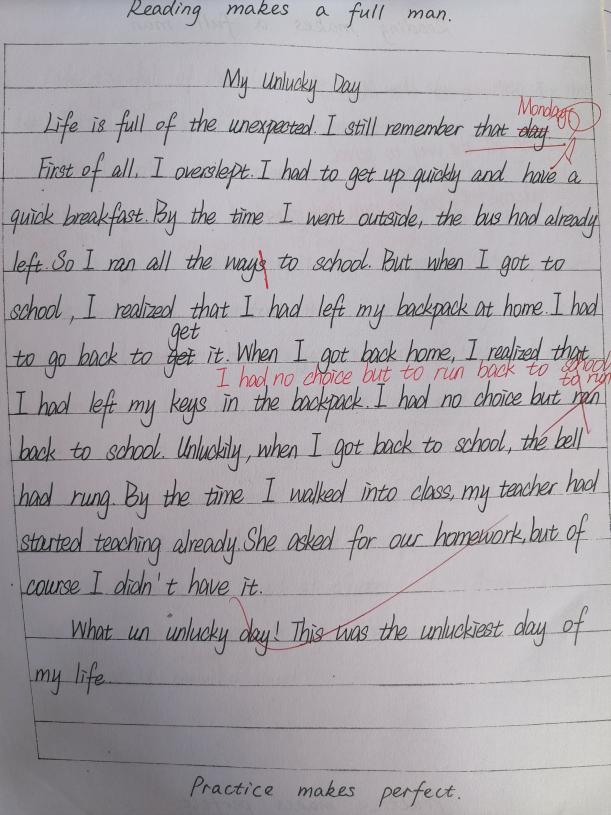 Reading makes a full man.
My Unlucky Day
Monday
Life is full of the unexpected. I still remember that day.
First of all, I overslept. I had to get up quickly and have a
quick breakfast. By the time I went outside, the bus had already
left. So I ran all the ways to school. But when I got to
school, I realized that I had left my backpack at home. I had
get
to go back to get it. When I got back home, I realized that
I had no choice but to run back to school
to run
I had left my keys in the backpack. I had no choice but ran
back to school. Unluckily, when I got back to school, the bell
had rung. By the time I walked into class, my teacher had
started teaching already. She asked for our homework, but of
course I didn't have it.
What un unlucky day! This was the unluckiest day of
my life.
Practice makes perfect.